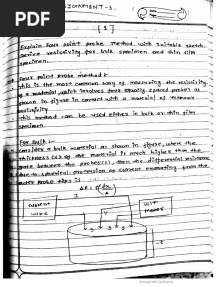 PDF
ASSIGNMENT-3.
[1]
Explain Four point probe method with suitable sketch.
Derive resistivity for bulk specimen and thin film
specimen.
Four point probe method:
This is the most common way of measuring the resistivity
of a material, which involves four equally spaced probes as
shown in figure in contact with a material of unknown
resistivity.
This method can be used either in bulk or thin film
specimen.
For Bulk :-
Consider a bulk material as shown in figure, where the
thickness of the material is much higher than the
space between the probes(s), then the differential resistance
due to spherical protrusion of current emanating from the
outer probe tips is
ΔR = ρ(dx/A)
I
current
V
volt
meter
s s s